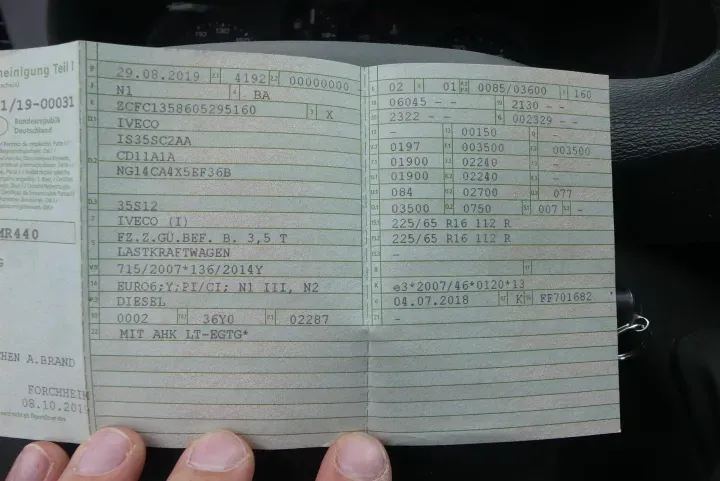 heinigung Teil I
1/19-00031
Bundesrepublik
Deutschland
MR440
CHEN A.BRAND
FORCHHEIM
08.10.2019
29.08.2019 4192 00000000
N1 BA
ZCFC1358605295160 X
IVECO
IS35SC2AA
CD11A1A
NG14CA4X5EF36B
35S12
IVECO (I)
FZ.Z.GÜ.BEF. B. 3,5 T
LASTKRAFTWAGEN
715/2007*136/2014Y
EURO6;Y;PI/CI; N1 III, N2
DIESEL
0002 36Y0 02287
MIT AHK LT-EGTG*
02 01 0085/03600 160
06045 - - 2130 - -
2322 - - 002329 - -
- 00150 -
0197 003500 003500
01900 02240 -
01900 02240 -
084 02700 077
03500 0750 007 -
225/65 R16 112 R
225/65 R16 112 R
-
e3*2007/46*0120*13
04.07.2018 K FF701682
-